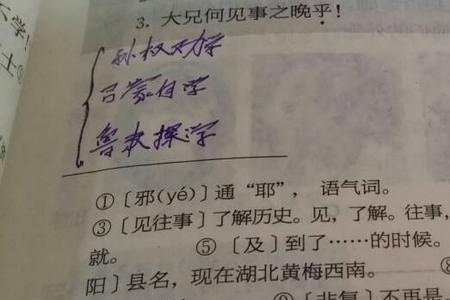 3. 大兄何见事之晚乎！
孙权劝学
吕蒙自学
鲁肃探学
①〔邪(yé)〕通“耶”， 语气词。
③〔见往事〕了解历史。见，了解。往事，
就。 ⑤〔及〕到了……的时候。
阳〕县名，现在湖北黄梅西南。